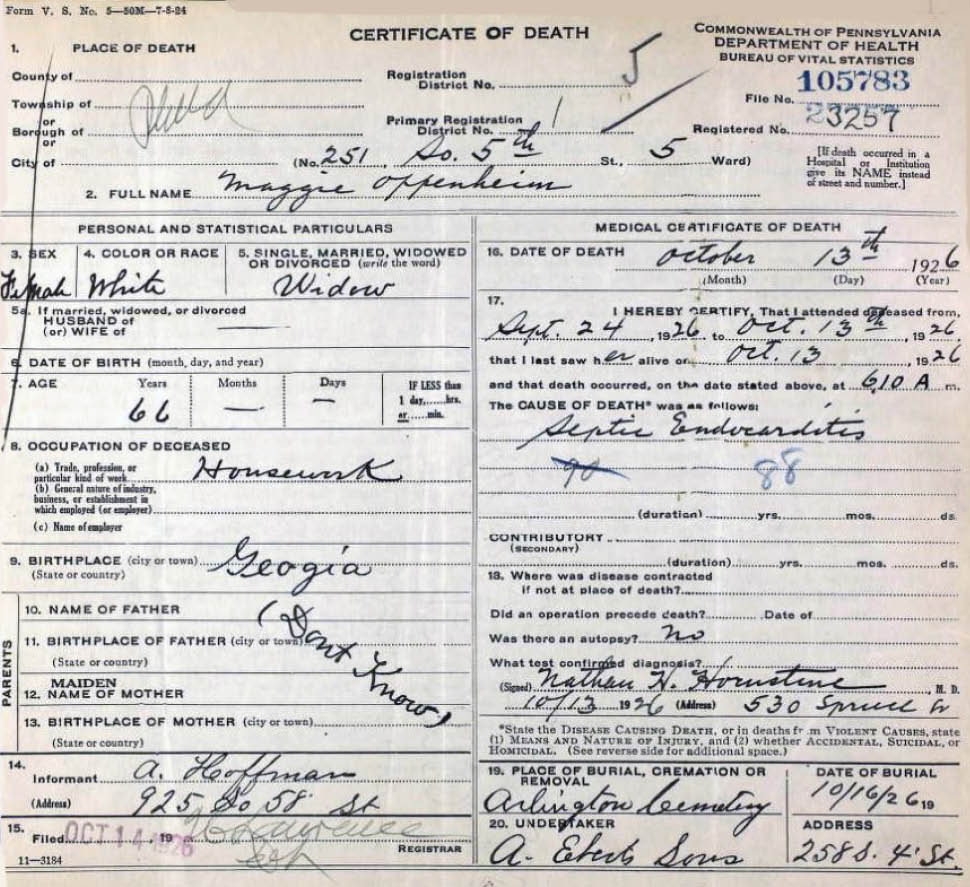 Form V. S. No. 5—50M—7-8-24
CERTIFICATE OF DEATH
COMMONWEALTH OF PENNSYLVANIA
DEPARTMENT OF HEALTH
BUREAU OF VITAL STATISTICS
1. PLACE OF DEATH
County of
Township of
or
Borough of
or
City of
Phila
Registration
District No.
5
Primary Registration
District No. 1
(No. 251 So. 5th St., 5 Ward)
File No. 105783
Registered No. 23257
[If death occurred in a
Hospital or Institution
give its NAME instead
of street and number.]
2. FULL NAME Maggie Oppenheim
PERSONAL AND STATISTICAL PARTICULARS
3. SEX
Female
4. COLOR OR RACE
White
5. SINGLE, MARRIED, WIDOWED
OR DIVORCED (write the word)
Widow
5a. If married, widowed, or divorced
HUSBAND of
(or) WIFE of —
6. DATE OF BIRTH (month, day, and year)
7. AGE
Years
66
Months
—
Days
—
IF LESS than
1 day,......hrs.
or......min.
8. OCCUPATION OF DECEASED
(a) Trade, profession, or
particular kind of work Housework
(b) General nature of industry,
business, or establishment in
which employed (or employer)
(c) Name of employer
9. BIRTHPLACE (city or town) Geogia
(State or country)
PARENTS
10. NAME OF FATHER
11. BIRTHPLACE OF FATHER (city or town)
(State or country)
12. MAIDEN NAME OF MOTHER
13. BIRTHPLACE OF MOTHER (city or town)
(State or country)
(Dont Know)
14.
Informant A. Hoffman
(Address) 925 So 58 St
15.
Filed OCT 14 1926, 19
REGISTRAR
11—3184
MEDICAL CERTIFICATE OF DEATH
16. DATE OF DEATH October 13th 1926
(Month) (Day) (Year)
17.
I HEREBY CERTIFY, That I attended deceased from,
Sept. 24, 1926, to Oct. 13th, 1926
that I last saw her alive on Oct. 13, 1926
and that death occurred, on the date stated above, at 6.10 A m.
The CAUSE OF DEATH* was as follows:
Septic Endocarditis
90 88
(duration) yrs. mos. ds.
CONTRIBUTORY
(SECONDARY)
(duration) yrs. mos. ds.
18. Where was disease contracted
if not at place of death?
Did an operation precede death? Date of
Was there an autopsy? No
What test confirmed diagnosis?
(Signed) Nathan H. Hornstine, M. D.
10/13 1926 (Address) 530 Spruce St
*State the DISEASE CAUSING DEATH, or in deaths from VIOLENT CAUSES, state
(1) MEANS AND NATURE OF INJURY, and (2) whether ACCIDENTAL, SUICIDAL, or
HOMICIDAL. (See reverse side for additional space.)
19. PLACE OF BURIAL, CREMATION OR
REMOVAL
Arlington Cemetery
DATE OF BURIAL
10/16/26 19
20. UNDERTAKER
A. Eberts Sons
ADDRESS
258 S. 4' St.